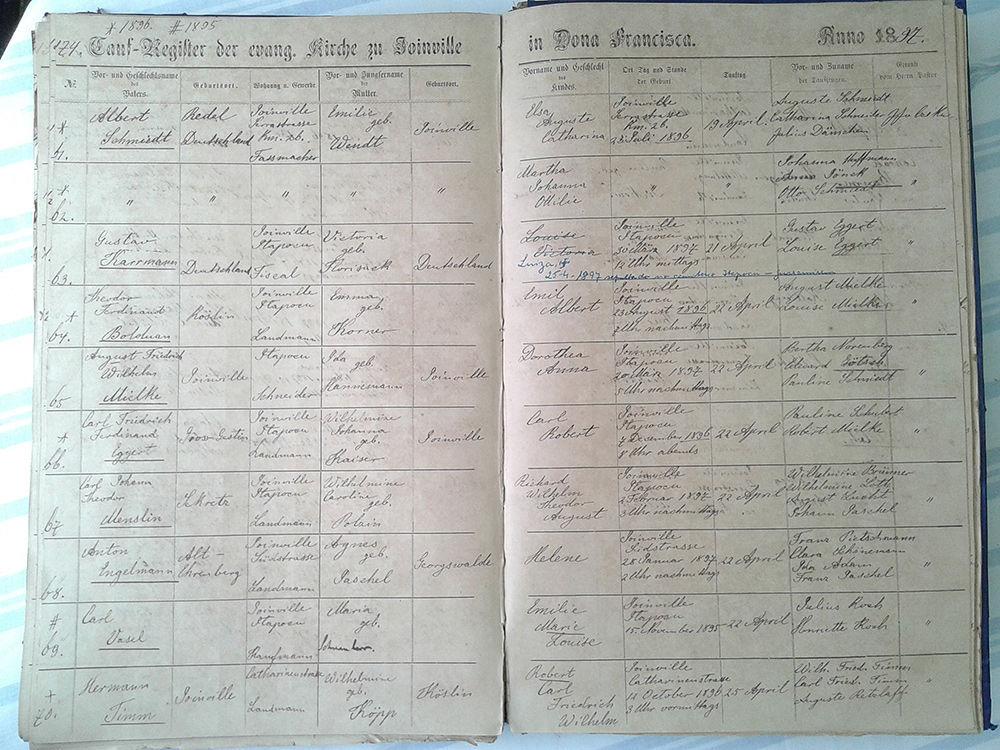 * 1896. # 1895
174. Tauf-Register der evang. Kirche zu Joinville in Dona Francisca. Anno 1897.
№ Vor- und Geschlechtsname des Vaters. Geburtsort. Wohnung u. Gewerbe Vor- und Jungfername der Mutter. Geburtsort. Vorname und Geschlecht des Kindes. Ort Tag und Stunde der Geburt. Tauftag Vor- und Zuname der Taufzeugen. Getauft vom Herrn Pastor
Albert Redel Joinville Emilie Elsa Joinville Auguste Schmiedt
* Serrastrasse geb. Joinville Auguste Serrastrasse 19 April Catharina Schneider
Schmiedt Deutschland km. 26. Wendt Catharina km. 26.
61. Fassmacher 23 Juli 1896 Julius
* Martha Johanna Hoffmann
" " " " " Johanna " "
62. Ottilie Otto Schmiedt "
Gustav Joinville Victoria Louise Joinville Gustav Eggert
Karrmann Itapocu geb. Victoria Itapocu
Deutschland Deutschland 30 März 1897 21 April Louise Eggert "
63. Fiscal 10 Uhr mittags
Luiza
25-4-1897
Theodor Joinville Emma Emil Joinville August Mielke
Ferdinand Köslin Itapocu geb. Albert Itapocu Louise Mielke "
+ 23 August 1896 22 April
64. Boldman Landmann Korner 2 Uhr nachmittags
August Friedrich Itapocu Ida Dorothea Joinville Bertha Norenberg
Wilhelm Joinville geb. Joinville Anna Itapocu Eduard Götsch
Mielke Schneider Hannemann 20 März 1897 22 April Pauline Schmiedt
65 5 Uhr nachmittags
Carl Friedrich Joinville Wilhelmine Carl Joinville Pauline Schubert
+ Ferdinand Itapocu Johanna Joinville Robert Itapocu Robert Mielke "
Eggert Landmann geb. 7 Desember 1896 22 April
66. Kaiser 8 Uhr abends
Carl Johann Joinville Wilhelmine Richard Joinville Wilhelmine Brümer
Theodor Itapocu Caroline Wilhelm Itapocu Wilhelmine
geb. Theodor 2 Februar 1897 22 April August "
67 Menslin Landmann Polzin August 3 Uhr nachmittags Johann Paschel
Anton Alt- Joinville Agnes Joinville Franz Pietschmann
Engelmann Ehrenberg Südstrasse geb. Georgswalde Helene Südstrasse Clara Schünemann
28 Januar 1897 22 April Ida Adam "
68. Landmann Paschel 2 Uhr nachmittags Franz Paschel
# Carl Joinville Maria Emilie Joinville Julius Koch
Itapocu geb. Marie Itapocu
Vasel Louise 15 November 1895 22 April Henriette Koch "
69. Kaufmann
Hermann Catharinenstrasse Wilhelmine Robert Joinville Wilh. Fried. Timm
+ Joinville geb. Köslin Carl Catharinenstrasse Carl Fried. Timm "
Landmann Friedrich 14 October 1896 25 April Auguste Retzlaff
70. Timm Köpp Wilhelm 3 Uhr vormittags